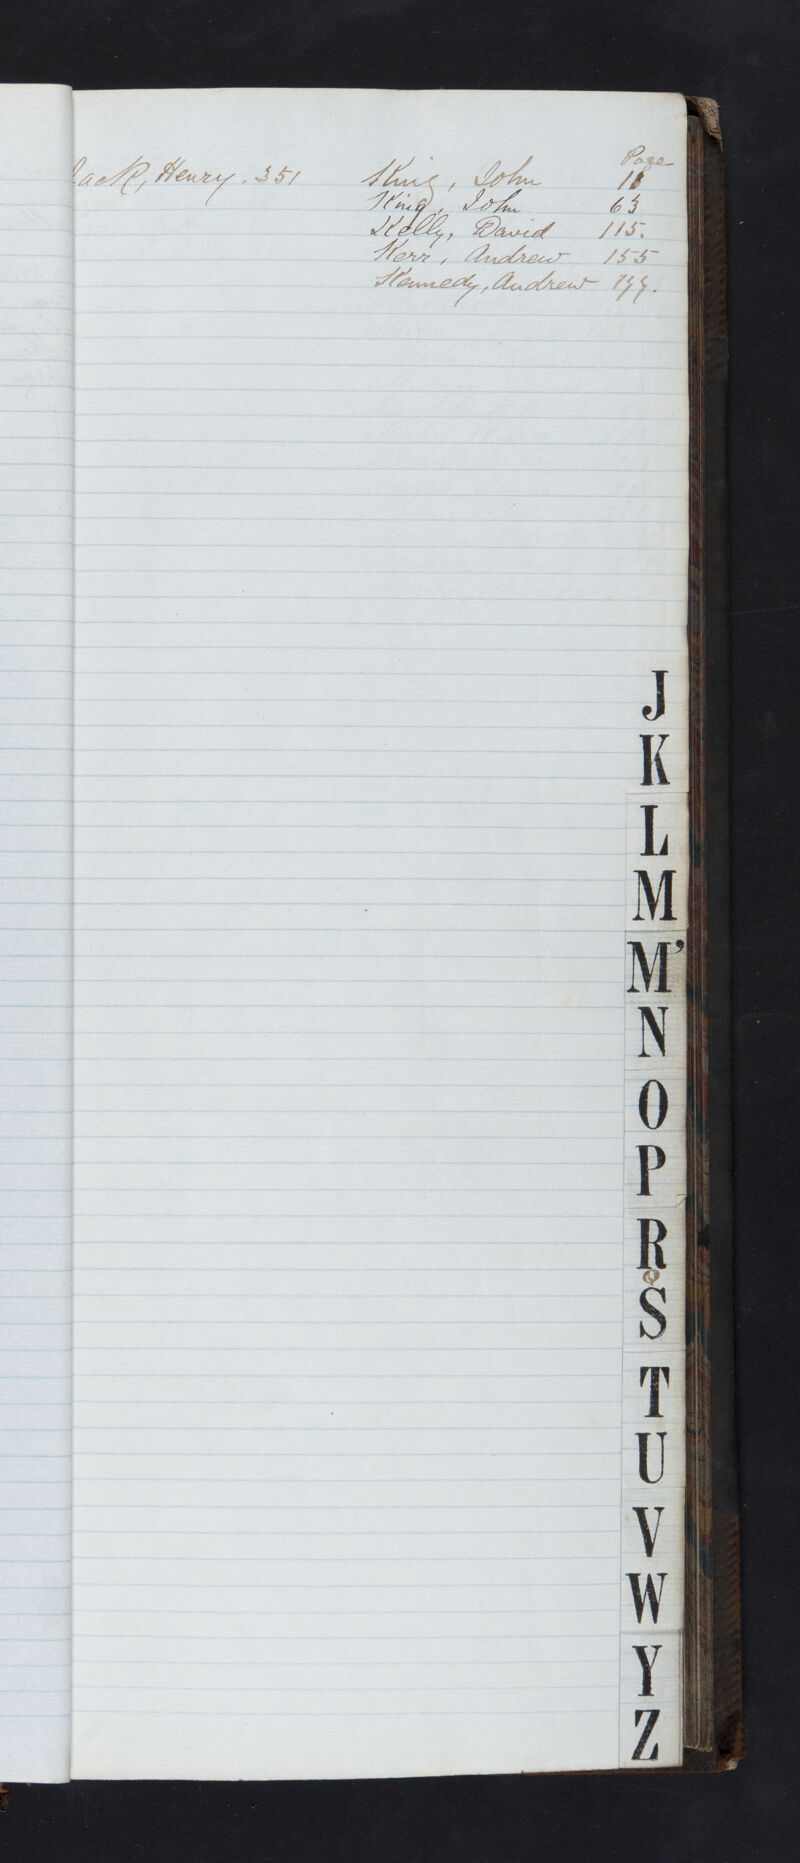 Page
Jack, Henry. 351
King, John 18
King, John 63
Kelly, David 115.
Kerr, Andrew 155
Kennedy, Andrew 177.
J
K
L
M
M'
N
O
P
R
S
T
U
V
W
Y
Z